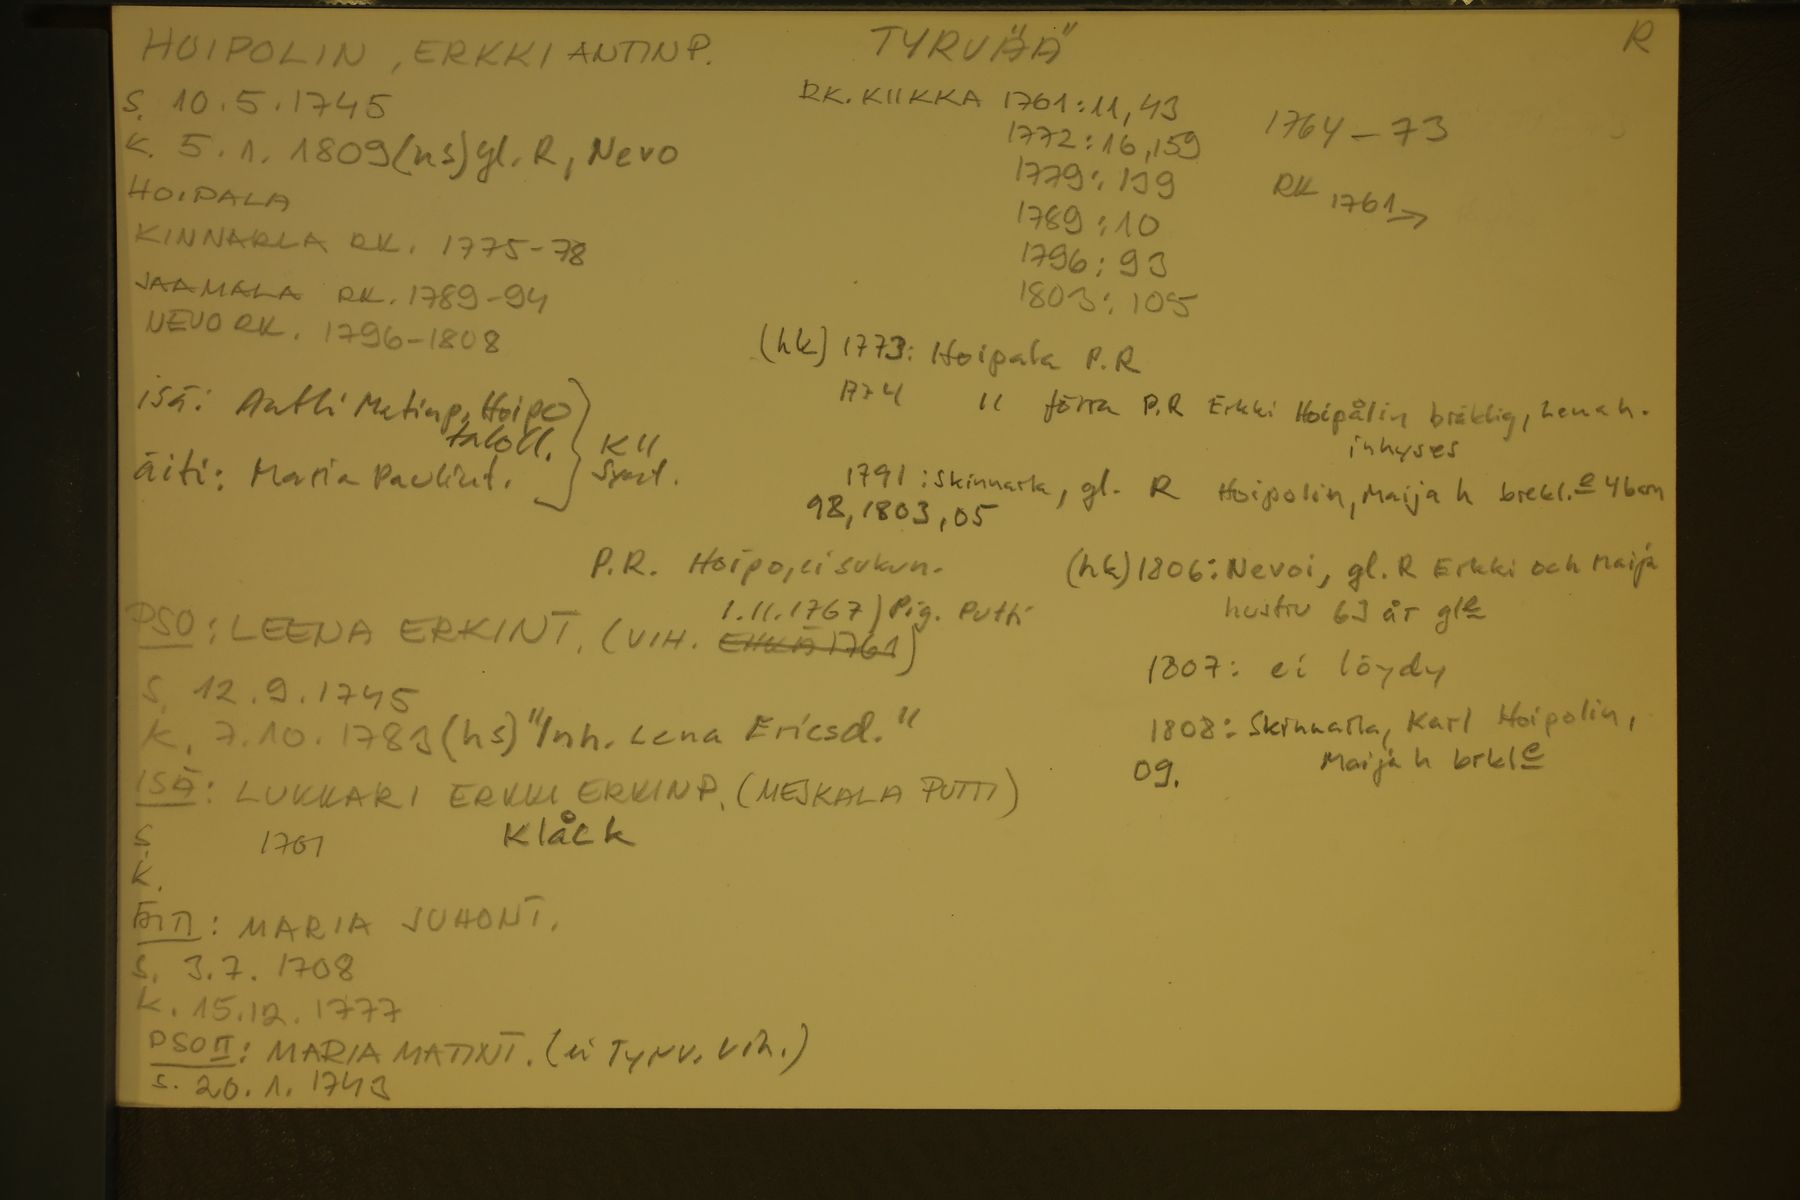 HOIPOLIN, ERKKI ANTINP.
TYRVÄÄ
R
S. 10.5.1745
K. 5.1.1809(hs) gl. R, Nevo
HOIPALA
KINNARLA RK. 1775-78
JAAMALA RK. 1789-94
NEVO RK. 1796-1808
RK. KIIKKA 1761:11,43
1772:16,159
1779:139
1789:10
1796:93
1803:105
1764-73
RK 1761→
isä: Antti Matinp. Hoipo
taloll.
äiti: Maria Paulint.
KII
Synt.
(hk) 1773: Hoipala P.R
1774 " förra P.R Erkki Hoipålin bräklig, Lena h.
inhyses
1791: Skinnarla, gl. R Hoipolin, Maija h brekl.e 4 barn
98,1803,05
P.R. Hoipo, ei sukun.
(hk) 1806: Nevoi, gl. R Erkki och Maija
hustru 63 år gle
1807: ei löydy
1808: Skinnarla, Karl Hoipolin,
09. Maija h brkle
1.11.1767) Pig. Putti
PSO: LEENA ERKINT. (VIH. EHKÄ 1761)
S. 12.9.1745
K. 7.10.1783(hs) "Inh. Lena Ericsd."
ISÄ: LUKKARI ERKKI ERKINP. (MEJKALA PUTTI)
S. 1701 Klåck
K.
ÄITI: MARIA JUHONT.
S. 3.7.1708
K. 15.12.1777
PSO II: MARIA MATINT. (ei Tyrv. vih.)
S. 20.1.1743